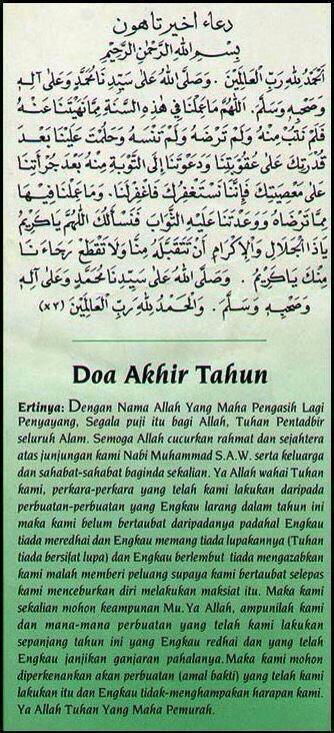 دعاء اخير تاهون
بِسْمِ اللهِ الرَّحْمٰنِ الرَّحِيْمِ
اَلْحَمْدُ لِلّٰهِ رَبِّ الْعَالَمِيْنَ . وَصَلَّى اللهُ عَلَى سَيِّدِنَا مُحَمَّدٍ وَعَلَى آلِهِ
وَصَحْبِهِ وَسَلَّمَ . اَللّٰهُمَّ مَا عَمِلْنَا فِي هٰذِهِ السَّنَةِ مِمَّا نَهَيْتَنَا عَنْهُ
فَلَمْ نَتُبْ مِنْهُ وَلَمْ تَرْضَهُ وَلَمْ تَنْسَهُ وَحَلُمْتَ عَلَيْنَا بَعْدَ
قُدْرَتِكَ عَلَى عُقُوْبَتِنَا وَدَعَوْتَنَا اِلَى التَّوْبَةِ مِنْهُ بَعْدَ جُرْأَتِنَا
عَلَى مَعْصِيَتِكَ فَاِنَّا نَسْتَغْفِرُكَ فَاغْفِرْلَنَا . وَمَا عَمِلْنَا فِيْهَا
مِمَّا تَرْضَاهُ وَوَعَدْتَنَا عَلَيْهِ الثَّوَابَ فَنَسْأَلُكَ اللّٰهُمَّ يَا كَرِيْمُ
يَا ذَا الْجَلَالِ وَالْاِكْرَامِ أَنْ تَتَقَبَّلَهُ مِنَّا وَلَا تَقْطَعْ رَجَاءَنَا
مِنْكَ يَا كَرِيْمُ . وَصَلَّى اللهُ عَلَى سَيِّدِنَا مُحَمَّدٍ وَعَلَى آلِهِ
وَصَحْبِهِ وَسَلَّمَ . وَالْحَمْدُ لِلّٰهِ رَبِّ الْعَالَمِيْنَ (٣×)
Doa Akhir Tahun
Ertinya: Dengan Nama Allah Yang Maha Pengasih Lagi
Penyayang, Segala puji itu bagi Allah, Tuhan Pentadbir
seluruh Alam. Semoga Allah cucurkan rahmat dan sejahtera
atas junjungan kami Nabi Muhammad S.A.W. serta keluarga
dan sahabat-sahabat baginda sekalian. Ya Allah wahai Tuhan
kami, perkara-perkara yang telah kami lakukan daripada
perbuatan-perbuatan yang Engkau larang dalam tahun ini
maka kami belum bertaubat daripadanya padahal Engkau
tiada meredhai dan Engkau memang tiada lupakannya (Tuhan
tiada bersifat lupa) dan Engkau berlembut tiada mengazabkan
kami malah memberi peluang supaya kami bertaubat selepas
kami menceburkan diri melakukan maksiat itu. Maka kami
sekalian mohon keampunan Mu.Ya Allah, ampunilah kami
dan mana-mana perbuatan yang telah kami lakukan
sepanjang tahun ini yang Engkau redhai dan yang telah
Engkau janjikan ganjaran pahalanya.Maka kami mohon
diperkenankan akan perbuatan (amal bakti) yang telah kami
lakukan itu dan Engkau tidak-menghampakan harapan kami.
Ya Allah Tuhan Yang Maha Pemurah.